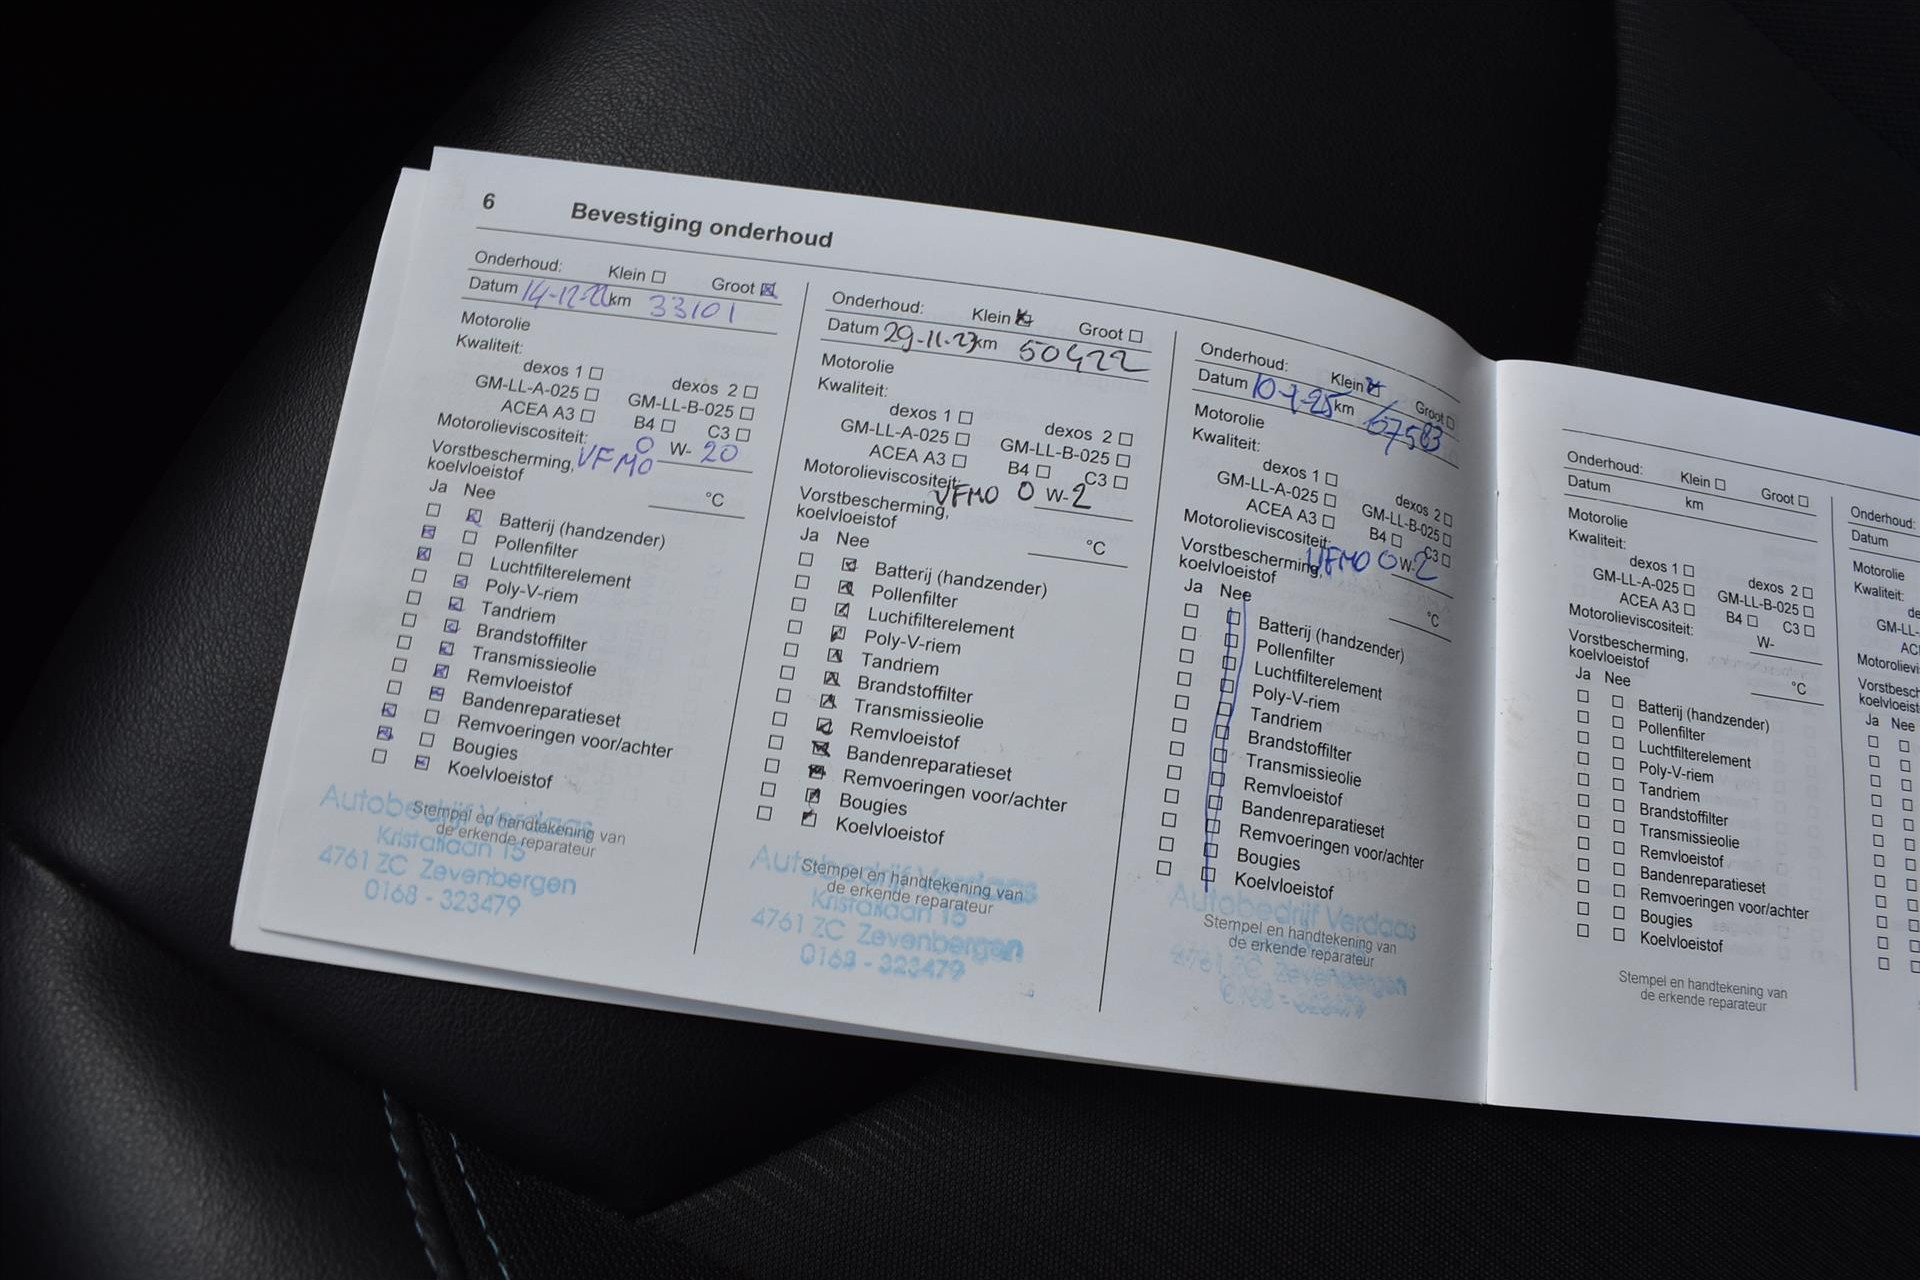 6 Bevestiging onderhoud
Onderhoud: Klein Groot
Datum 14-12-22 km 33101
Motorolie
Kwaliteit:
dexos 1 dexos 2
GM-LL-A-025 GM-LL-B-025
ACEA A3 B4 C3
Motorolieviscositeit: 0 W- 20
Vorstbescherming, VFMO
koelvloeistof °C
Ja Nee
Batterij (handzender)
Pollenfilter
Luchtfilterelement
Poly-V-riem
Tandriem
Brandstoffilter
Transmissieolie
Remvloeistof
Bandenreparatieset
Remvoeringen voor/achter
Bougies
Koelvloeistof
Stempel en handtekening van
de erkende reparateur
Autobedrijf Verdaas
Kristallaan 15
4761 ZC Zevenbergen
0168 - 323479
Onderhoud: Klein Groot
Datum 29-11-23 km 50422
Motorolie
Kwaliteit:
dexos 1 dexos 2
GM-LL-A-025 GM-LL-B-025
ACEA A3 B4 C3
Motorolieviscositeit: VFMO 0 W- 2
Vorstbescherming,
koelvloeistof °C
Ja Nee
Batterij (handzender)
Pollenfilter
Luchtfilterelement
Poly-V-riem
Tandriem
Brandstoffilter
Transmissieolie
Remvloeistof
Bandenreparatieset
Remvoeringen voor/achter
Bougies
Koelvloeistof
Stempel en handtekening van
de erkende reparateur
Autobedrijf Verdaas
Kristallaan 15
4761 ZC Zevenbergen
0168 - 323479
Onderhoud: Klein Groot
Datum km 67583
Motorolie
Kwaliteit:
dexos 1 dexos 2
GM-LL-A-025 GM-LL-B-025
ACEA A3 B4 C3
Motorolieviscositeit: VFMO 0 W- 2
Vorstbescherming,
koelvloeistof °C
Ja Nee
Batterij (handzender)
Pollenfilter
Luchtfilterelement
Poly-V-riem
Tandriem
Brandstoffilter
Transmissieolie
Remvloeistof
Bandenreparatieset
Remvoeringen voor/achter
Bougies
Koelvloeistof
Autobedrijf Verdaas
Stempel en handtekening van
de erkende reparateur
4761 ZC Zevenbergen
0168 - 323479
Onderhoud: Klein Groot
Datum km
Motorolie
Kwaliteit:
dexos 1 dexos 2
GM-LL-A-025 GM-LL-B-025
ACEA A3 B4 C3
Motorolieviscositeit: W-
Vorstbescherming,
koelvloeistof °C
Ja Nee
Batterij (handzender)
Pollenfilter
Luchtfilterelement
Poly-V-riem
Tandriem
Brandstoffilter
Transmissieolie
Remvloeistof
Bandenreparatieset
Remvoeringen voor/achter
Bougies
Koelvloeistof
Stempel en handtekening van
de erkende reparateur
Onderhoud:
Datum
Motorolie
Kwaliteit:
de
GM-LL-
AC
Motorolievi
Vorstbesch
koelvloeist
Ja Nee